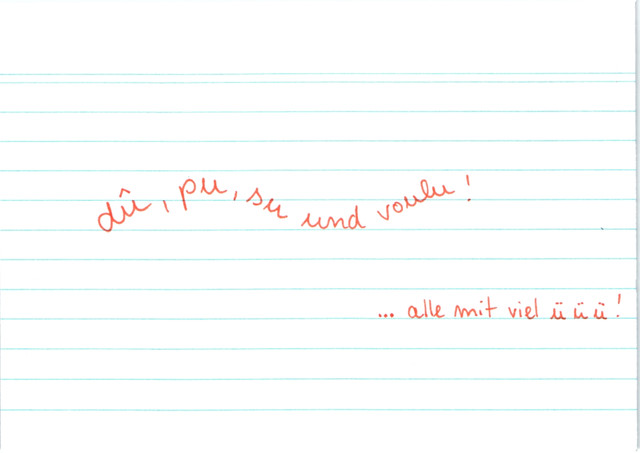 dû, pu, su und voulu!
... alle mit viel ü ü ü!